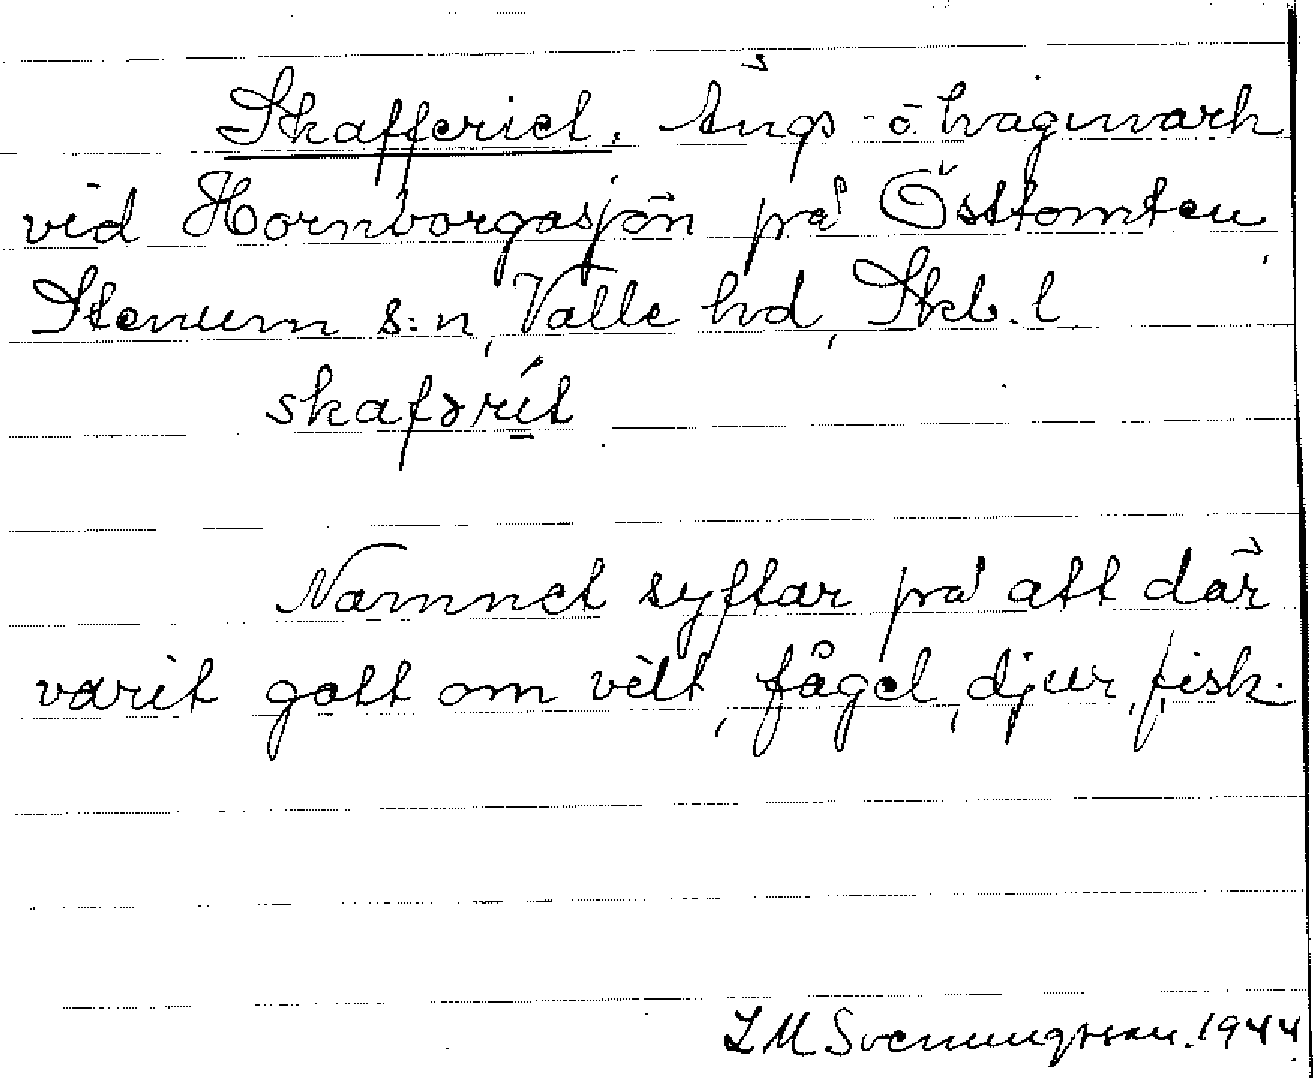 Skafferiet. Ängs- o hagmark
vid Hornborgasjön på Östtomten
Stenum s:n, Valle hd, Skb. l.
skafərít
Namnet syftar på att där
varit gott om vilt, fågel, djur, fisk.
L M Svenungsson. 1944